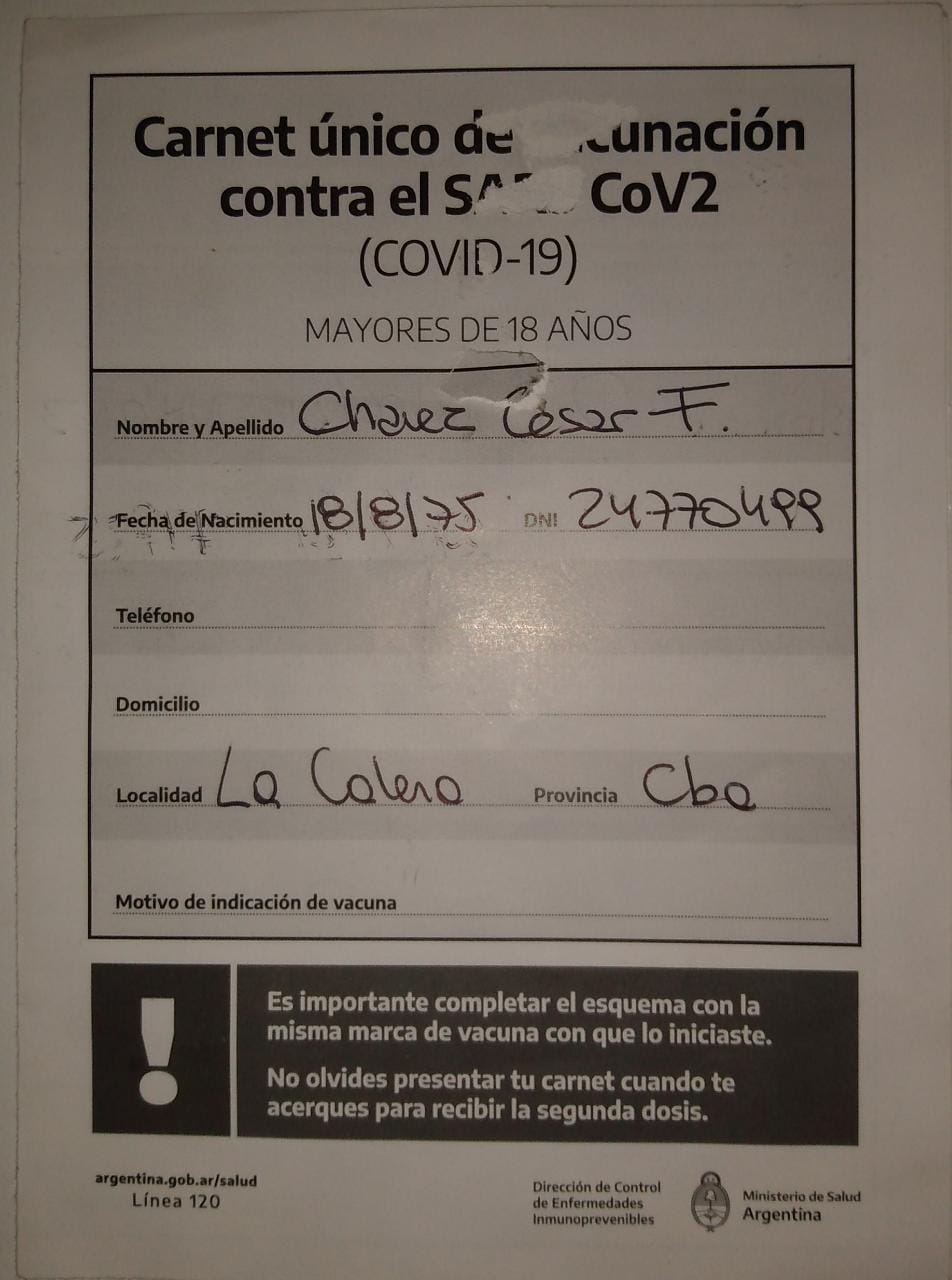 Carnet único de cunación
contra el SA CoV2
(COVID-19)
MAYORES DE 18 AÑOS
Nombre y Apellido Chavez César F.
Fecha de Nacimiento 18/8/75 DNI 24770499
Teléfono
Domicilio
Localidad La Calera Provincia Cba
Motivo de indicación de vacuna
!
Es importante completar el esquema con la
misma marca de vacuna con que lo iniciaste.
No olvides presentar tu carnet cuando te
acerques para recibir la segunda dosis.
argentina.gob.ar/salud
Línea 120
Dirección de Control
de Enfermedades
Inmunoprevenibles
Ministerio de Salud
Argentina